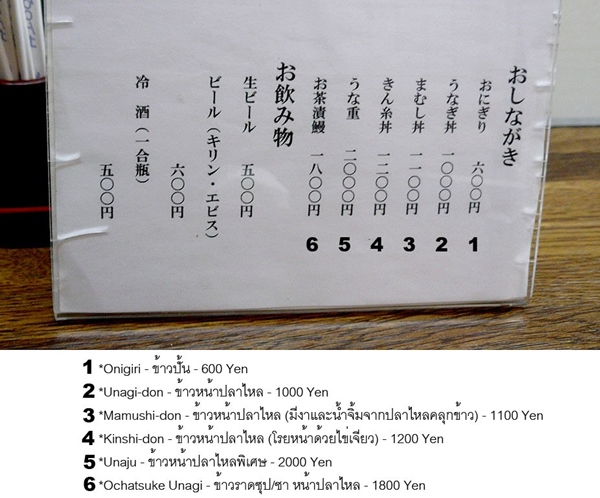 おしながき
おにぎり 六〇〇円
うなぎ丼 一〇〇〇円
まむし丼 一一〇〇円
きん糸丼 一二〇〇円
うな重 二〇〇〇円
お茶漬鰻 一八〇〇円
お飲み物
生ビール 五〇〇円
ビール（キリン・エビス）
六〇〇円
冷 酒（一合瓶）
五〇〇円
6 5 4 3 2 1
1 *Onigiri - ข้าวปั้น - 600 Yen
2 *Unagi-don - ข้าวหน้าปลาไหล - 1000 Yen
3 *Mamushi-don - ข้าวหน้าปลาไหล (มีงาและน้ำจิ้มจากปลาไหลคลุกข้าว) - 1100 Yen
4 *Kinshi-don - ข้าวหน้าปลาไหล (โรยหน้าด้วยไข่เจียว) - 1200 Yen
5 *Unaju - ข้าวหน้าปลาไหลพิเศษ - 2000 Yen
6 *Ochatsuke Unagi - ข้าวราดซุป/ชา หน้าปลาไหล - 1800 Yen